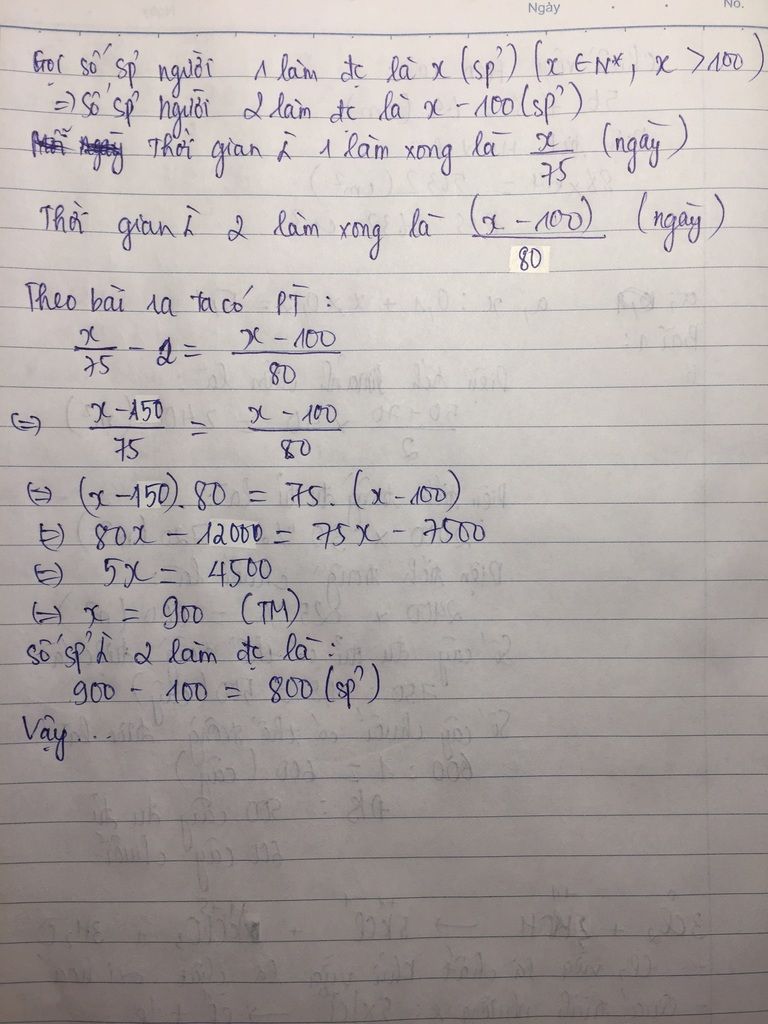 Ngày
No.
Gọi số sp người 1 làm đc là x (sp) (x ∈ N*, x > 100)
=> Số sp người 2 làm đc là x - 100 (sp)
Thời gian 1 làm xong là x/75 (ngày)
Thời gian 2 làm xong là (x - 100)/80 (ngày)
Theo bài ra ta có PT:
x/75 - 2 = x - 100/80
<=> x - 150/75 = x - 100/80
<=> (x - 150).80 = 75.(x - 100)
<=> 80x - 12000 = 75x - 7500
<=> 5x = 4500
<=> x = 900 (TM)
Số sp 2 làm đc là:
900 - 100 = 800 (sp)
Vậy...